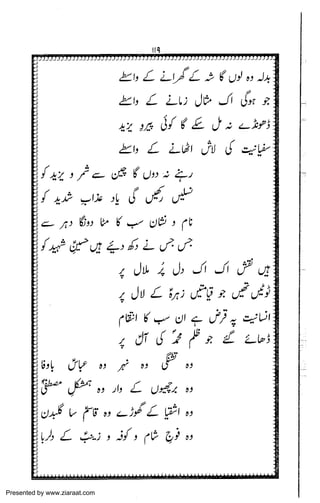 ۱۱۹
بدلہ وہ لوں گا شہ کے گھرانے کے واسطے
جو ہوگی اک مثال زمانے کے واسطے
ڈھونڈے نہ مل سکے گا کوئی پیروِ یزید
سفیانیت کی لاش اٹھانے کے واسطے
رہنے نہ دوں گا چین سے شمر و یزید کو
نسلیں رکھیں گی یاد عذابِ شدید کو
نام و نشان سب کا مٹا دونگا دہر سے
جس جس نے دکھ دیئے ہیں حسینؑ شہید کو
ہیں نقش اک اک دل پُر ملال پر
ٹوٹیں تھیں جو قیامتیں زہرہؑ کے لال پر
انسانیت پہ قرض ہے ان سب کا انتقام
ڈھائے گئے جو ظلم محمدؐ کی آل پر
وہ تشنگی وہ نہر وہ عباسؑ باوفا
وہ برچھیوں کے وار وہ ہمشکلِ مصطفیٰؐ
وہ اشقیا کے گھوڑے وہ قاسمؑ سا گلبدن
وہ فوجِ شام و کوفہ و زینبؑ کے دلربا
Presented by www.ziaraat.com